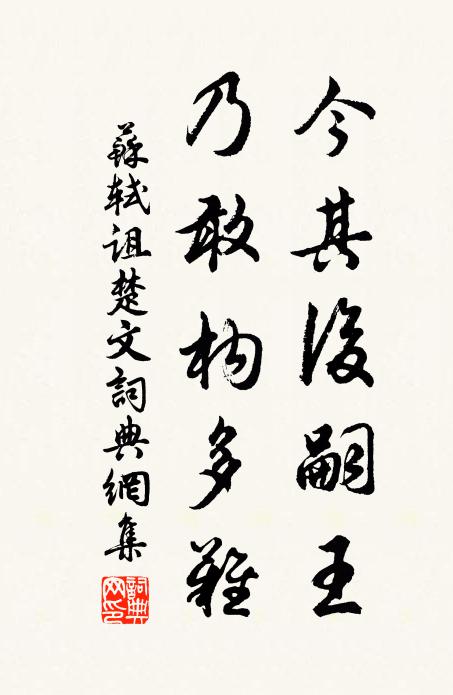 今其後嗣王
乃敢构多難
蘇軾诅楚文詞典網集
詞典
网印